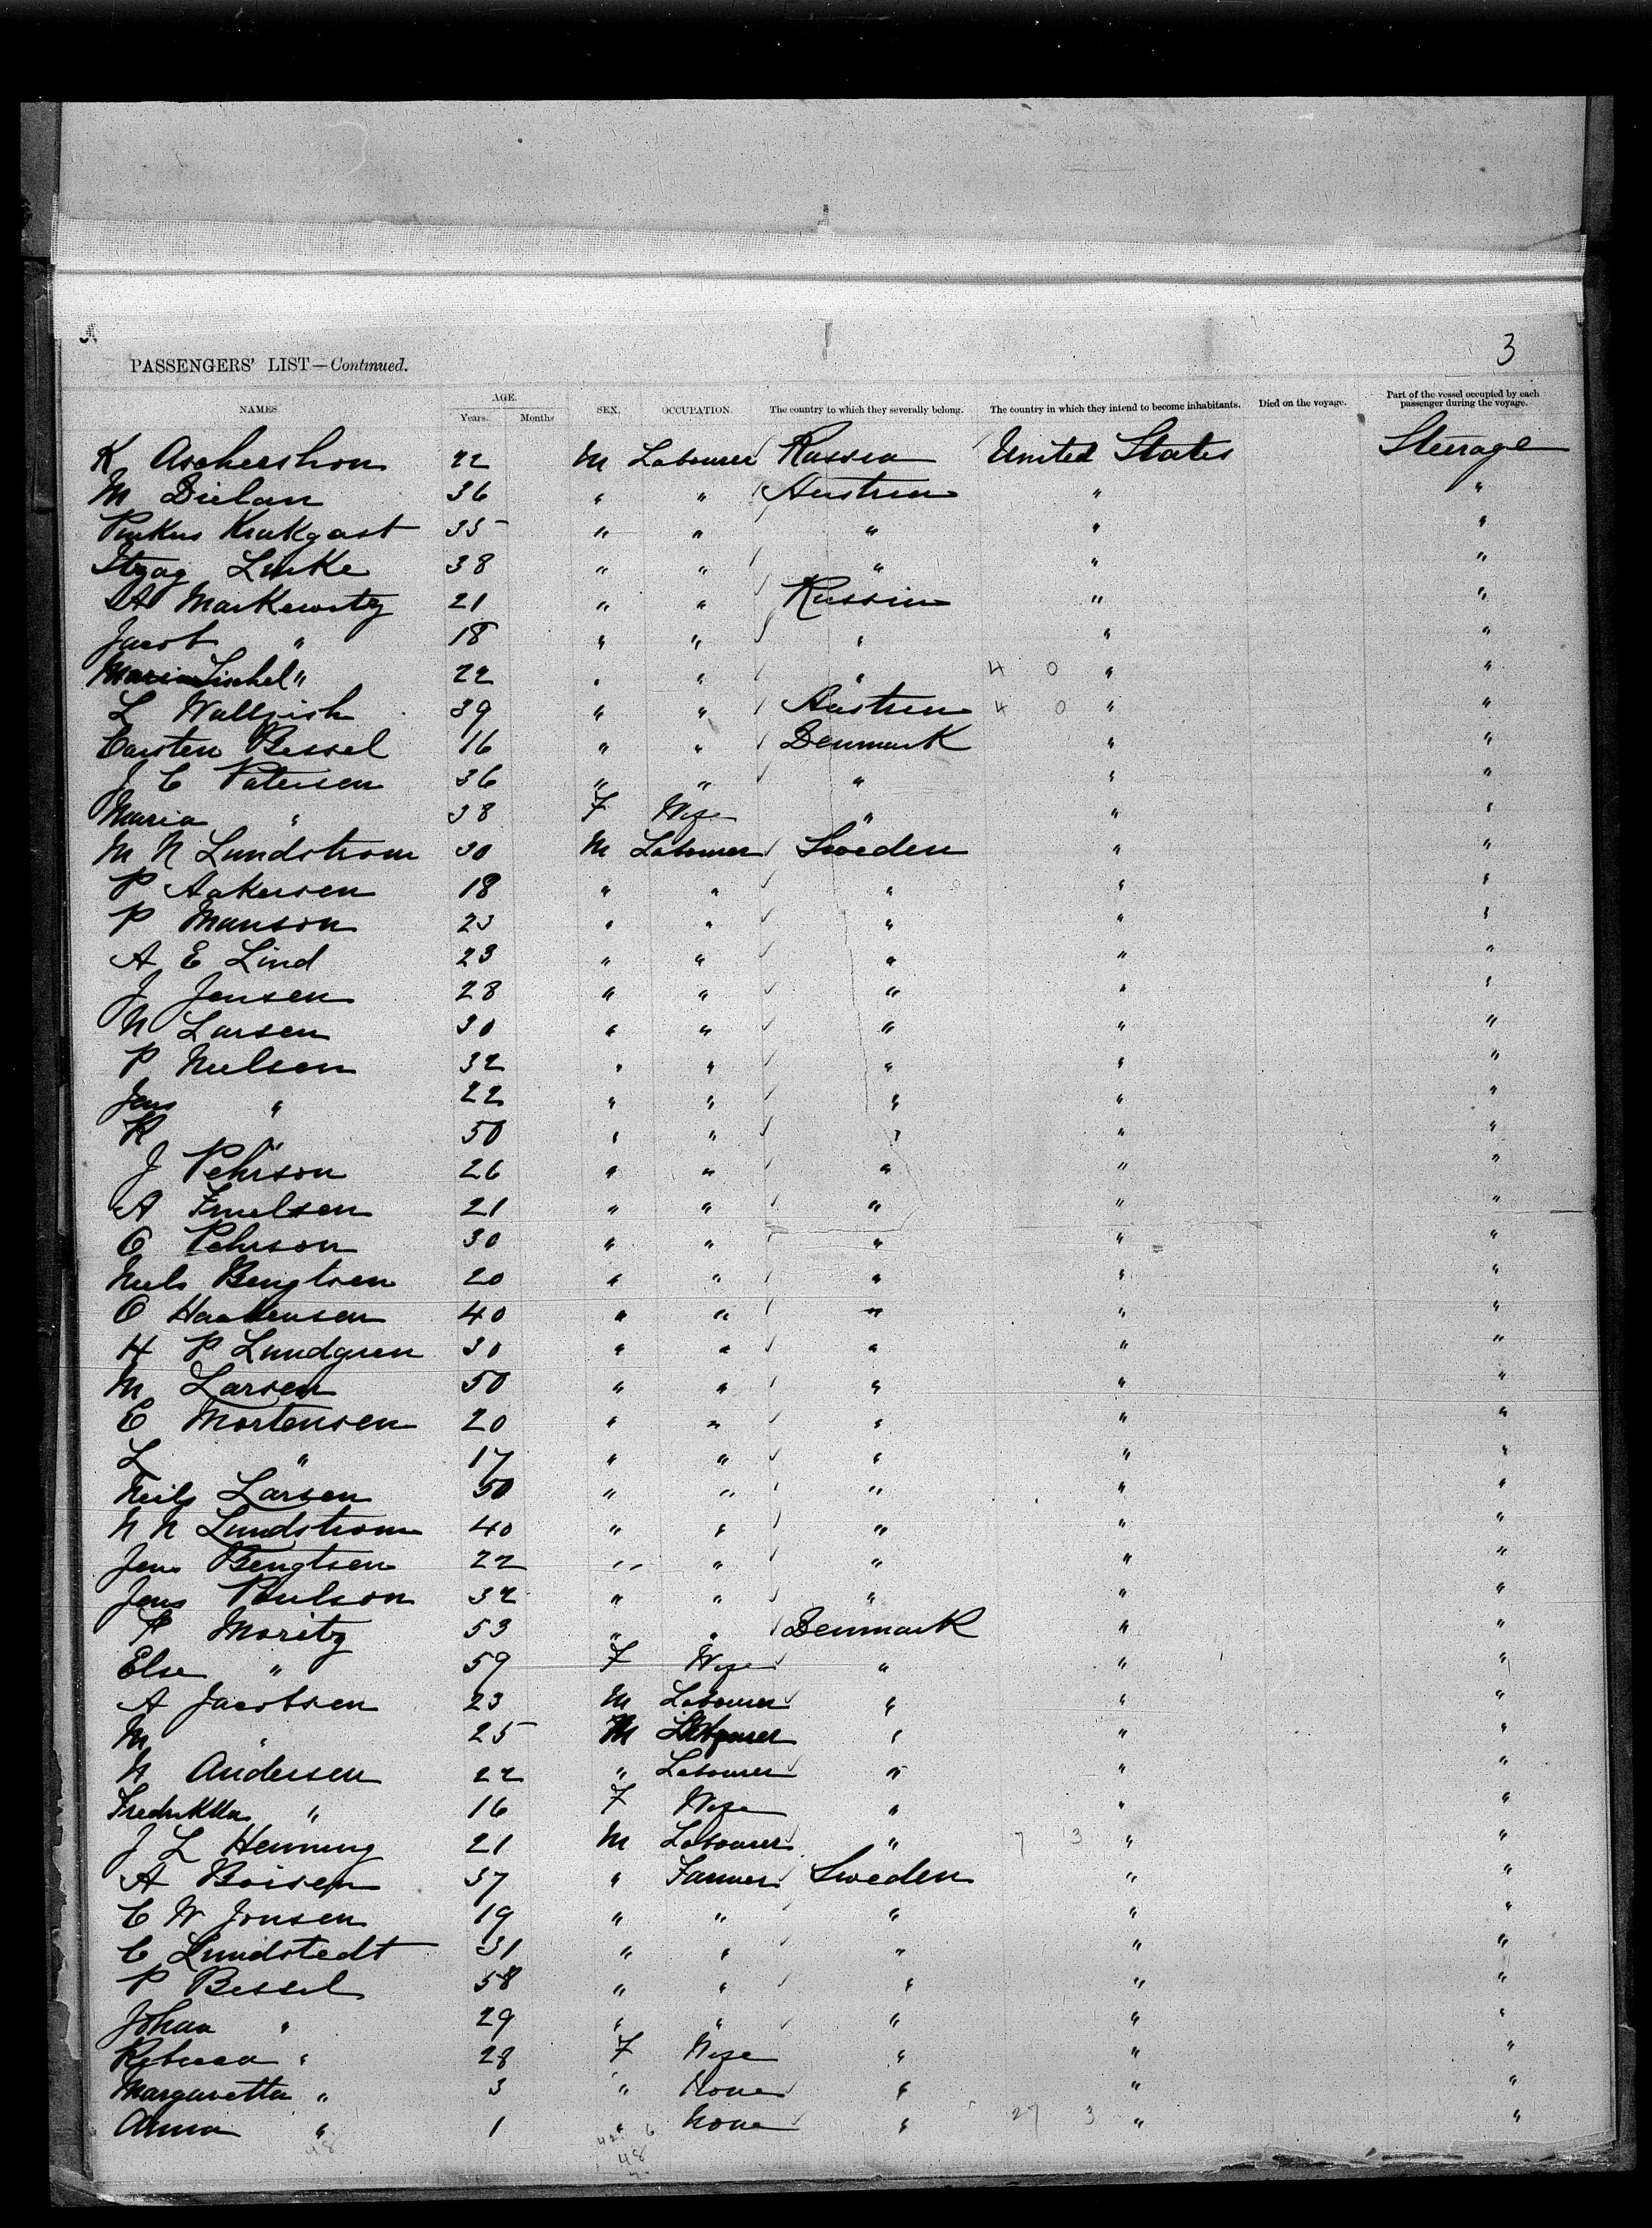 3
PASSENGERS' LIST—Continued.
NAMES. AGE. Years. Months SEX. OCCUPATION. The country to which they severally belong. The country in which they intend to become inhabitants. Died on the voyage. Part of the vessel occupied by each passenger during the voyage.
K Aschershon 22 M Labourer Russia United States Steerage
M Dielan 36 " " Austria " "
Pinkus Krakgast 35 " " " " "
Itzag Linke 38 " " " " "
Markewitz 21 " " Russia " "
Jacob " 18 " " " " "
Lischel " 22 " " " 4 0 " "
L Wallfisch 39 " " Austria 4 0 " "
Carsten Bessel 16 " " Denmark " "
J C Petersen 36 " " " " "
Maria " 38 F Wife " " "
M N Lundstrom 30 M Labourer Sweden " "
P Aakersen 18 " " " " "
P Manson 23 " " " " "
A E Lind 23 " " " " "
J Jensen 28 " " " " "
N Larsen 30 " " " " "
P Nielsen 32 " " " " "
Jens " 22 " " " " "
K " 50 " " " " "
J Pehrson 26 " " " " "
A 21 " " " " "
O Pehrson 30 " " " " "
Niels Bengtsen 20 " " " " "
O Haakensen 40 " " " " "
H P Lundgren 30 " " " " "
M Larsen 50 " " " " "
C Mortensen 20 " " " " "
L " 17 " " " " "
Neils Larsen 50 " " " " "
N N Lundstrom 40 " " " " "
Jens Bengtsen 22 " " " " "
Jens Poulson 32 " " " " "
P Moritz 53 " " Denmark " "
Else " 59 F Wife " " "
A Jacobsen 23 M Labourer " " "
M " 25 M Labourer " " "
N Andersen 22 " Labourer " " "
Fredrikka " 16 F Wife " " "
J L Henning 21 M Labourer " 7 3 " "
A Boisen 37 " Farmer Sweden " "
C W Jonsen 19 " " " " "
C Lundstedt 31 " " " " "
P Bessel 58 " " " " "
Johan " 29 " " " " "
Rebecca " 28 F Wife " " "
Margaretta " 3 " None " " "
Anna " 1 " None " 27 3 " "
48 42 6
48